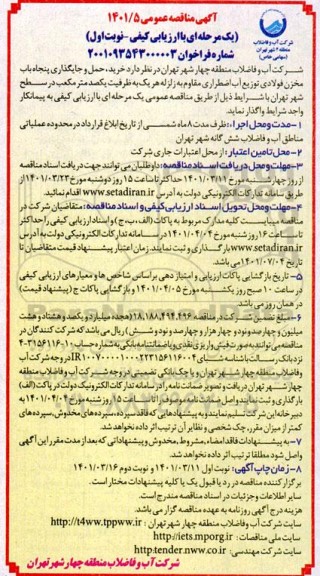 آگهی مناقصه عمومی ۱۴۰۱/۵
(یک مرحله‌ای با ارزیابی کیفی - نوبت اول)
شماره فراخوان ۲۰۰۱۰۹۳۵۴۳۰۰۰۰۰۳
شرکت آب و فاضلاب
منطقه ۴ شهر تهران
(سهامی خاص)
شرکت آب و فاضلاب منطقه چهار شهر تهران در نظر دارد خرید، حمل و جایگذاری پنجاه باب
مخزن فولادی توزیع آب اضطراری مقاوم به زلزله هر یک به ظرفیت یکصد متر مکعب در سطح
شهر تهران با شرایط ذیل از طریق مناقصه عمومی یک مرحله‌ای با ارزیابی کیفی به پیمانکار
واجد شرایط واگذار نماید.
۱- مدت و محل اجراء: ظرف مدت ۸ ماه شمسی از تاریخ ابلاغ قرارداد در محدوده عملیاتی
مناطق آب و فاضلاب شش گانه شهر تهران
۲- محل تامین اعتبار: از محل اعتبارات جاری شرکت
۳- مهلت و محل دریافت اسناد مناقصه: داوطلبان می توانند جهت دریافت اسناد مناقصه
از روز چهارشنبه مورخ ۱۴۰۱/۰۳/۱۱ حداکثر تا ساعت ۱۵ روز دوشنبه مورخ ۱۴۰۱/۰۳/۲۳ از
طریق سامانه تدارکات الکترونیکی دولت به آدرس www.setadiran.ir اقدام نمایند.
۴- مهلت و محل تحویل اسناد ارزیابی کیفی و اسناد مناقصه: متقاضیان شرکت در
مناقصه میبایست کلیه مدارک مربوط به پاکات (الف، ب، ج) و اسناد ارزیابی کیفی را حداکثر
تا ساعت ۱۶ روز شنبه مورخ ۱۴۰۱/۰۴/۰۴ در سامانه تدارکات الکترونیکی دولت به آدرس
www.setadiran.ir بارگذاری و ثبت نمایند. زمان اعتبار پیشنهاد قیمت متقاضیان تا
تاریخ ۱۴۰۱/۰۷/۰۴ می باشد.
۵- تاریخ بازگشایی پاکات ارزیابی و امتیاز دهی بر اساس شاخص ها و معیارهای ارزیابی کیفی
در ساعت ۱۰ صبح روز یکشنبه مورخ ۱۴۰۱/۰۴/۰۵ و بازگشایی پاکات ج (پیشنهاد قیمت)
در همان روز می باشد.
۶- مبلغ تضمین شرکت در مناقصه ۱۸,۱۸۸,۴۹۴,۴۹۶ (هجده میلیارد و یکصد و هشتاد و هشت
میلیون و چهارصد و نود و چهار هزار و چهارصد و نود و شش) ریال می باشد که شرکت کنندگان در
مناقصه می توانند به صورت فیش واریزی نقدی و یا ضمانتنامه بانکی به شماره حساب
نزد بانک رسالت با شناسه شبای در وجه شرکت آب
وفاضلاب منطقه چهار شهر تهران و یا چک بانکی تضمینی در وجه شرکت آب و فاضلاب منطقه
چهار شهر تهران دریافت و تصویر ضمانت نامه را در سامانه تدارکات الکترونیک دولت در پاکت (الف)
بارگذاری و ثبت نمایند و اصل ضمانتنامه را حداکثر تا ساعت ۱۵ روز شنبه مورخ ۱۴۰۱/۰۴/۰۴ به
دبیرخانه این شرکت تسلیم نمایند و به پیشنهادهایی که فاقد سپرده، سپرده‌های مخدوش، سپرده‌های
کمتر از میزان مقرر، چک شخصی و نظایر آن ترتیب اثر داده نخواهد شد.
۷- به پیشنهادات فاقد امضاء، مشروط، مخدوش و پیشنهاداتی که بعد از مدت مقرر این آگهی
واصل شود مطلقا ترتیب اثر داده نخواهد شد.
۸- زمان چاپ آگهی: نوبت اول ۱۴۰۱/۰۳/۱۱ و نوبت دوم ۱۴۰۱/۰۳/۱۶
برگزارکننده مناقصه در رد یا قبول یک یا کلیه پیشنهادات مختار است.
سایر اطلاعات و جزئیات در اسناد مناقصه مندرج است.
هزینه درج آگهی روزنامه به عهده مناقصه گزار می باشد.
سایت شرکت آب و فاضلاب منطقه چهار شهر تهران : http://t4ww.tppww.ir
سایت ملی مناقصات: http://iets.mporg.ir
سایت شرکت مهندسی: http:tender.nww.co.ir
شرکت آب و فاضلاب منطقه چهار شهر تهران